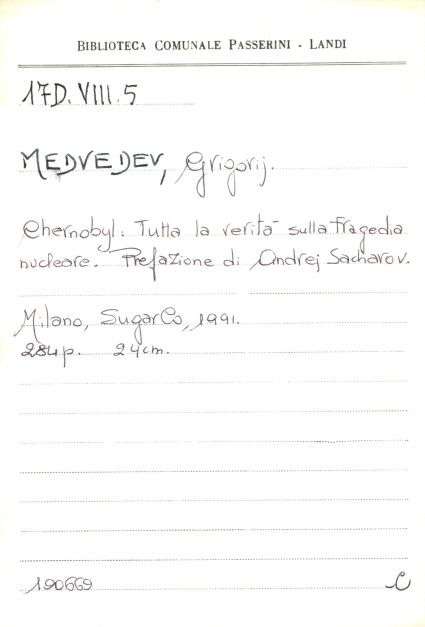 BIBLIOTECA COMUNALE PASSERINI - LANDI
17D.VIII.5
MEDVEDEV, Grigorij.
Chernobyl: Tutta la verità sulla tragedia
nucleare. Prefazione di Andrej Sacharov.
Milano, SugarCo, 1991.
284p. 24cm.
190669 C